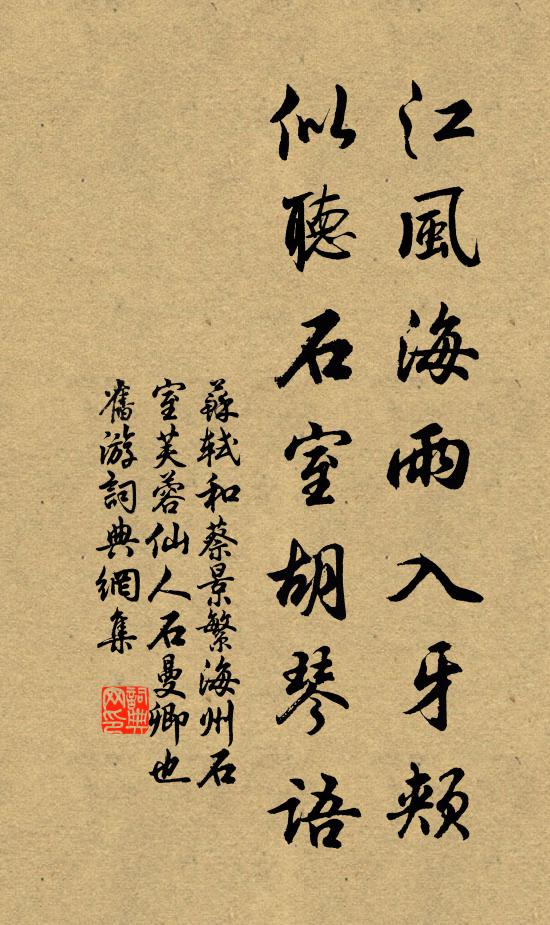 江風海雨入牙頰
似聽石室胡琴語
蘇軾和蔡景繁海州石
室芙蓉仙人石曼卿也
舊游詞典網集
詞典網印